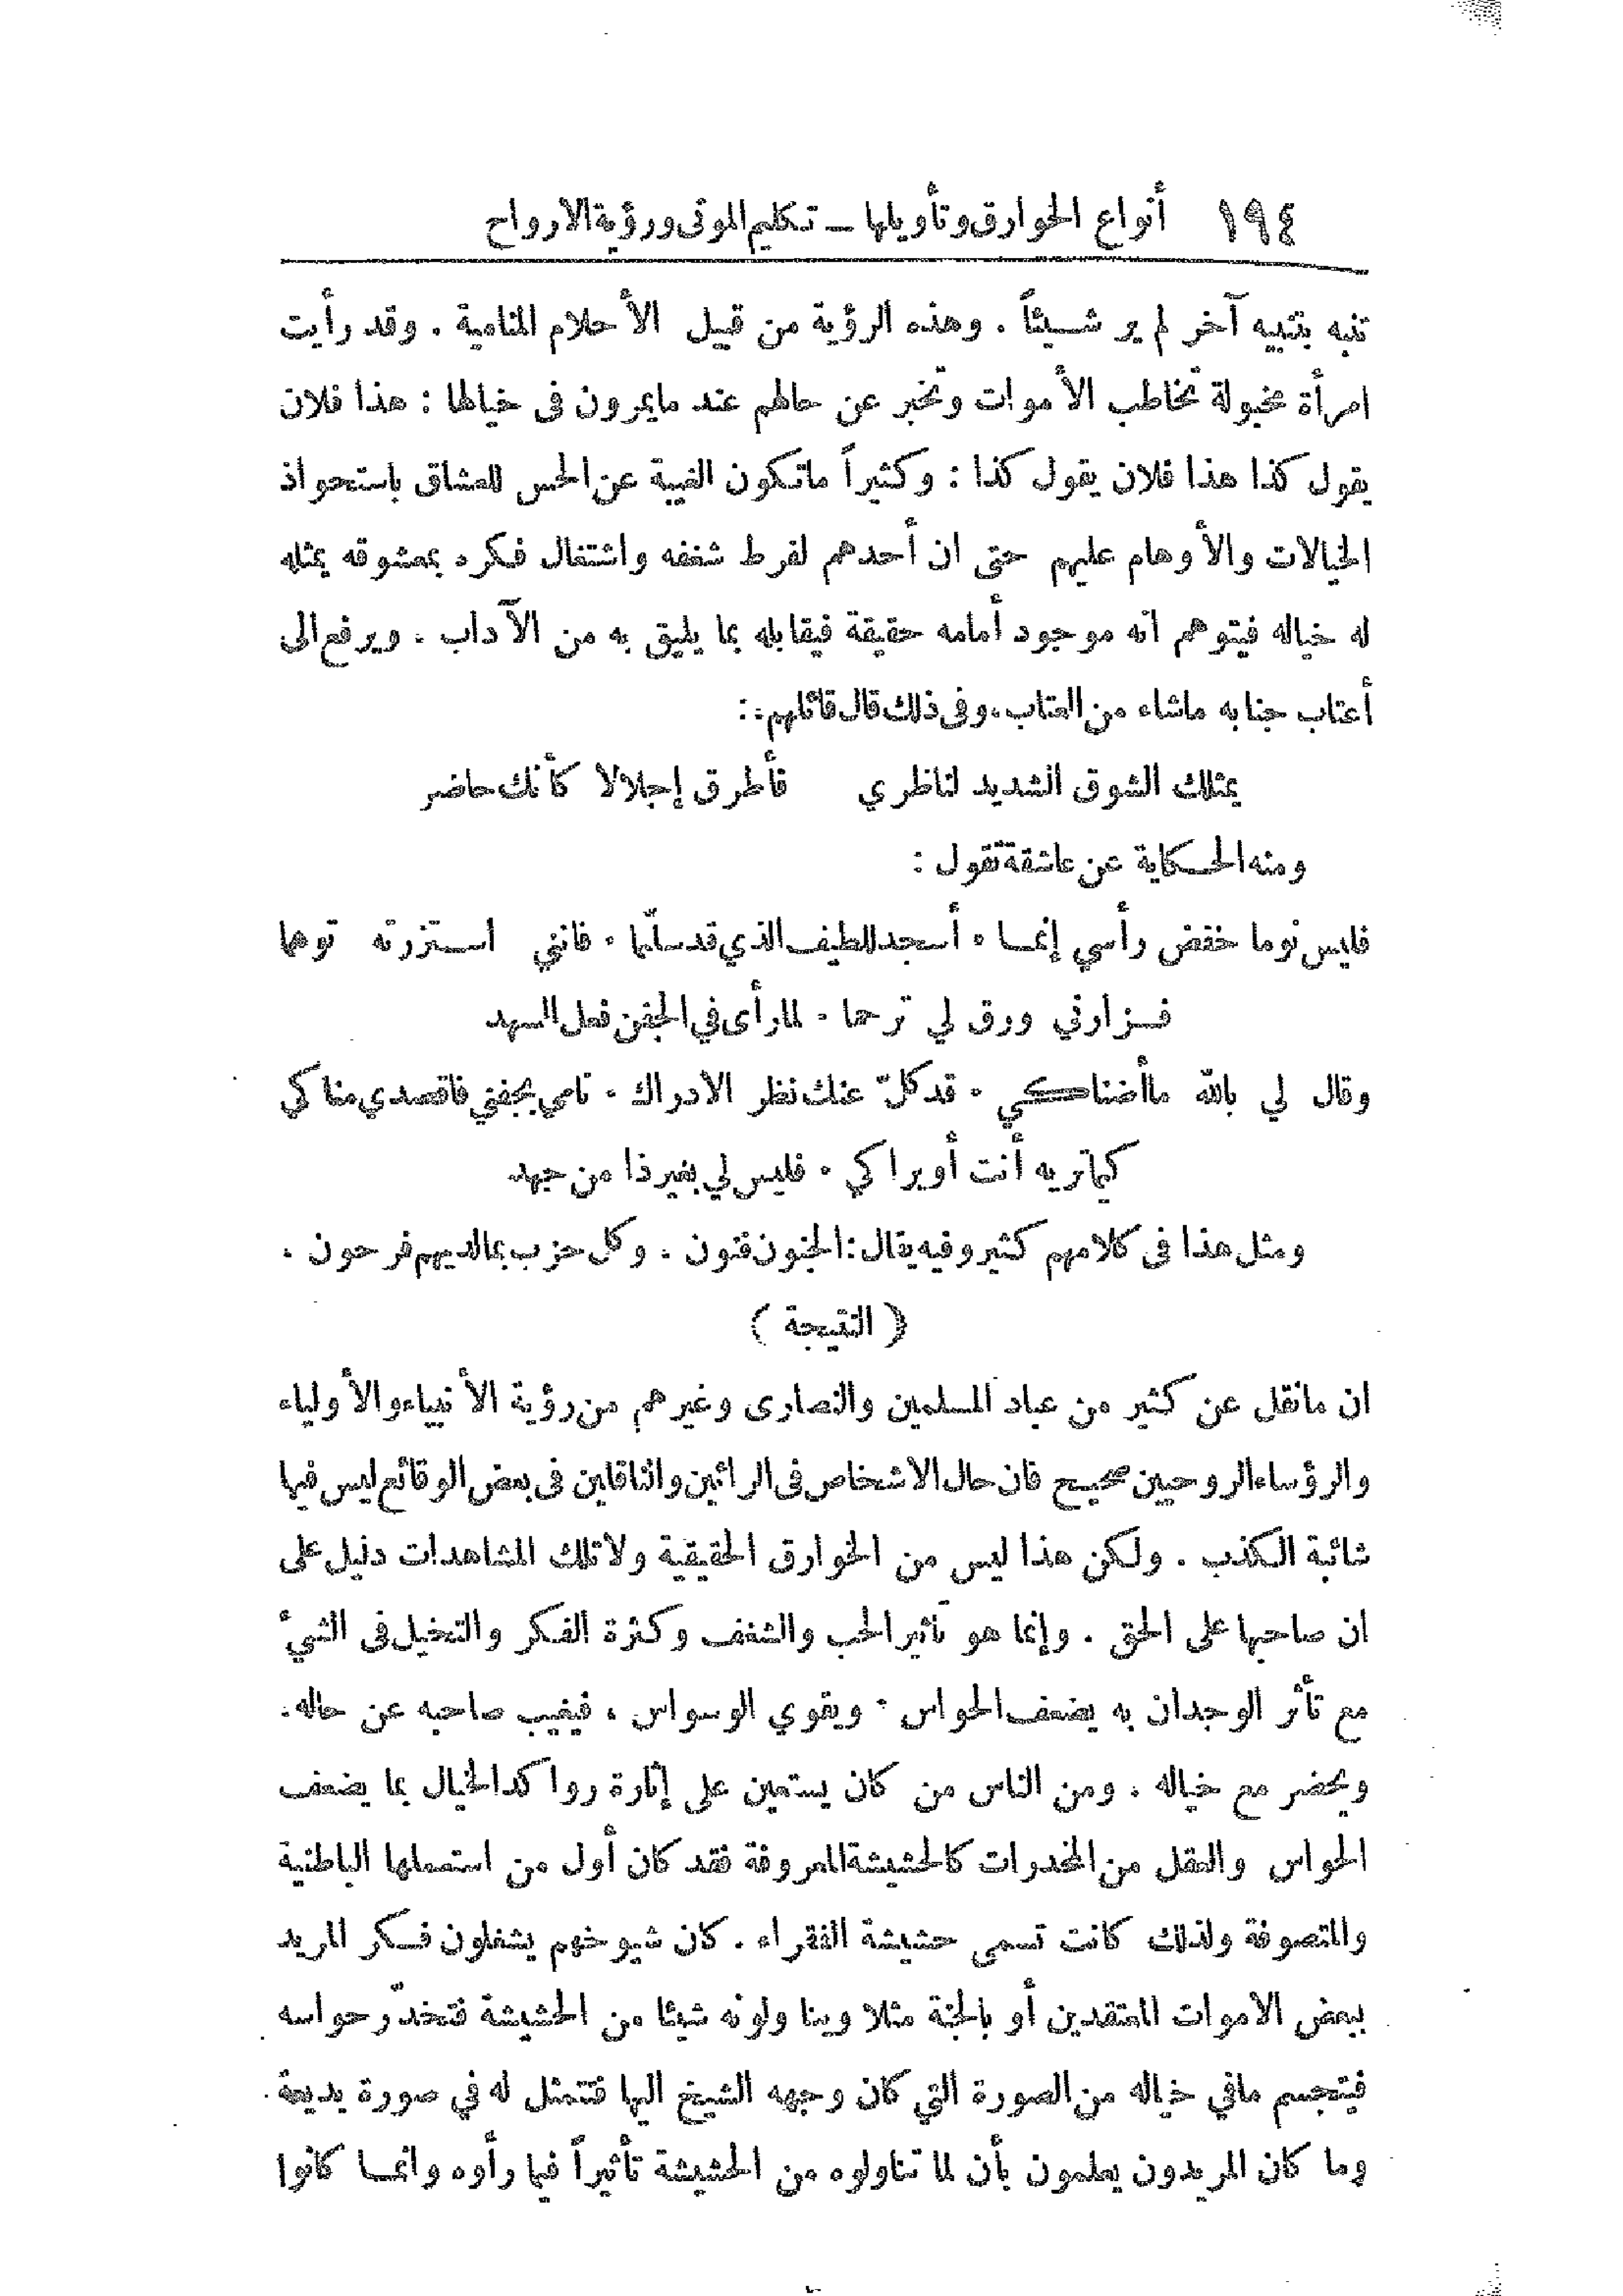 ١٩٤ أنواع الخوارق وتأويلها – تكليم الموتى ورؤية الارواح
تنبه بتنبيه آخر لم ير شيئاً . وهذه الرؤية من قبيل الأحلام المنامية . وقد رأيت
امرأة مخبولة تخاطب الأموات وتخبر عن حالهم عند مايمرون فى خيالها : هذا فلان
يقول كذا هذا فلان يقول كذا : وكثيراً ماتكون الغيبة عن الحس للعشاق باستحواذ
الخيالات والأوهام عليهم حتى ان أحدهم لفرط شغفه واشتغال فكره بمعشوقه يمثله
له خياله فيتوهم انه موجود أمامه حقيقة فيقابله بما يليق به من الآداب . ويرفع الى
أعتاب جنابه ماشاء من العتاب، وفى ذلك قال قائلهم :
يمثلك الشوق الشديد لناظري فأطرق إجلالا كأنك حاضر
ومنه الحكاية عن عاشقة تقول :
فليس نوما خفض رأسي إنما . أسجد للطيف الذي قد سلّما . فانني استزرته توهما
فزارني ورق لي ترحما . لما رأى في الجفن فعل السهد
وقال لي بالله ماأضناكي . قد كلّ عنك نظر الادراك . نامي بجفني فاقصدي مناكي
كيما تريه أنت أو يراكي . فليس لي بغير ذا من جهد
ومثل هذا فى كلامهم كثير وفيه يقال : الجنون فنون . وكل حزب بما لديهم فرحون .
( النتيجة )
ان مانقل عن كثير من عباد المسلمين والنصارى وغيرهم من رؤية الأنبياء والأولياء
والرؤساء الروحيين صحيح فان حال الاشخاص فى الرائين والناقلين فى بعض الوقائع ليس فيها
شائبة الكذب . ولكن هذا ليس من الخوارق الحقيقية ولا تلك المشاهدات دليل على
ان صاحبها على الحق . وإنما هو تأثير الحب والشغف وكثرة الفكر والتخيل فى الشيء
مع تأثر الوجدان به يضعف الحواس . ويقوي الوسواس ، فيغيب صاحبه عن حاله.
ويحضر مع خياله . ومن الناس من كان يستعين على إثارة رواكد الخيال بما يضعف
الحواس والعقل من المخدرات كالحشيشة المعروفة فقد كان أول من استعملها الباطنية
والمتصوفة ولذلك كانت تسمى حشيشة الفقراء . كان شيوخهم يشغلون فكر المريد
ببعض الاموات المعتقدين أو بالجنة مثلا ويناولونه شيئا من الحشيشة فتخدّر حواسه
فيتجسم مافي خياله من الصورة التي كان وجهه الشيخ اليها فتتمثل له في صورة بديعة
وما كان المريدون يعلمون بأن لما تناولوه من الحشيشة تأثيراً فيما رأوه وانما كانوا